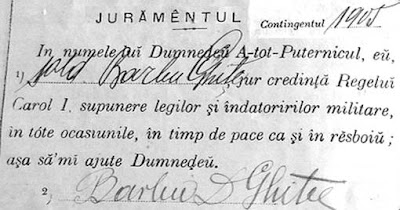 JURĂMÊNTUL Contingentul 1905
In numele lui Dumnedeŭ A-tot-Puternicul, eŭ,
1) sold. Barbu Ghiţe jur credinţă Regelui
Carol I, supunere legilor şi îndatoririlor militare,
în tóte ocasiunile, în timp de pace ca şi în rĕsboiŭ;
aşa să'mi ajute Dumnedeŭ.
2) Barbu D Ghiţe